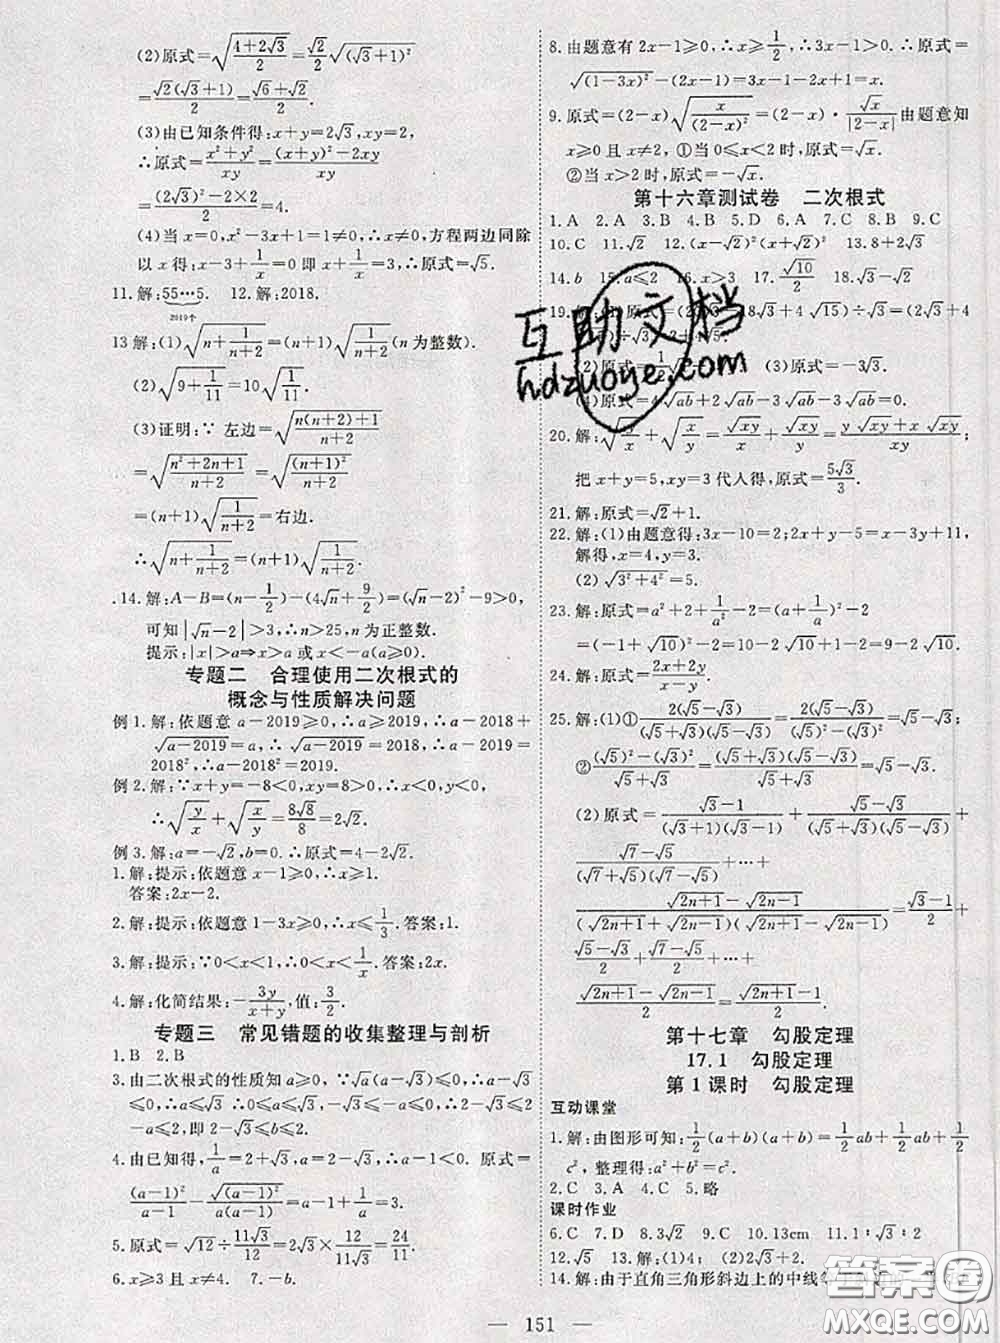 (2)原式=√((4+2√3)/2)=(√2/2)√((√3+1)²)
=√2(√3+1)/2=(√6+√2)/2.
(3)由已知条件得:x+y=2√3,xy=2,
∴原式=(x²+y²)/xy=((x+y)²-2xy)/xy
=((2√3)²-2×2)/2=4.
(4)当 x=0,x²-3x+1=1≠0,方程两边同除
以 x 得:x-3+1/x=0 即 x+1/x=3,∴原式=√5.
11.解:55…5.  12.解:2018.
2019个
13解:(1)√(n+1/(n+2))=(n+1)√(1/(n+2))(n 为整数).
(2)√(9+1/11)=10√(1/11).
(3)证明:∵ 左边=√((n(n+2)+1)/(n+2))
=√((n²+2n+1)/(n+2))=√((n+1)²/(n+2))
=(n+1)√(1/(n+2))=右边.
∴√(n+1/(n+2))=(n+1)√(1/(n+2)).
14.解:A-B=(n-1/2)-(4√n+9/2)=(√n-2)²-9>0,
可知|√n-2|>3,∴n>25,n 为正整数.
提示:|x|>a⇒x>a 或 x<-a(a≥0).
专题二  合理使用二次根式的
概念与性质解决问题
例 1.解:依题意 a-2019≥0,∴a≥2019,∴a-2018+
√(a-2019)=a,∴√(a-2019)=2018,∴a-2019=
2018²,∴a-2018²=2019.
例 2.解:∵x+y=-8<0,xy=8>0,∴x<0,y<0,
∴√(y/x)+√(x/y)=8√8/8=2√2.
例 3.解:a=-√2,b=0,∴原式=4-2√2.
1.解:提示:依题意 x-1≥0,∴x≥1.
答案:2x-2.
2.解:提示:依题意 1-3x≥0,∴x≤1/3.答案:1.
3.解:提示:∵0<x<1,∴0<x<1/x.答案:2x.
4.解:化简结果:-3y/(x+y),值:3/2.
专题三  常见错题的收集整理与剖析
1.B  2.B
3.由二次根式的性质知 a≥0, ∵√a(√a-√3)<0,∴
√a>0,√a-√3<0,∴0<a<3,∴2-√3-2<2-
a<2,即 2-√3≤b≤2.
4.由已知得,1/a=2+√3,a=2-√3,∴a-1<0. 原式=
(a-1)²/(a-1)-√((a-1)²)/(a(a-1))=a-1+1/a=3.
5.原式=√12÷11√3/12=2√3×12/(11√3)=24/11.
6.x≥3 且 x≠4.  7.-√-a.
8.由题意有 2x-1≥0,∴x≥1/2. ∴原式=
√((1-3x)²)-(2x-1)=3x-1-2x+1=x.
9.原式=(2-x)√(x/(2-x)²)=(2-x)·√x/|2-x|由题意知
x≥0 且 x≠2,①当 0≤x<2 时,原式=√x.
②当 x>2 时,原式=-√x.
第十六章测试卷  二次根式
1.A  2.A  3.B  4.B  5.D  6.A  7.C  8.B  9.C
10.C  11.√2  12.(x-√2)²(x+√2)²  13.8+2√3
14.b  15.a≤2  16.x>3  17.√10/2  18.√3-√2
20.解:√(y/x)+√(x/y)=√xy/x+√xy/y=(y√xy+x√xy)/xy;
把 x+y=5,xy=3 代人得,原式=5√3/3.
21.解:原式=√2+1.
22.解:(1)由题意得:3x-10=2;2x+y-5=x-3y+11,
解得,x=4,y=3.
(2) √(3²+4²)=5.
23.解:原式=a²+2+1/a²-2=(a+1/a)²-2
=(-1+√10)²-2=10-2√10+1-2=9-2√10.
24.解:原式=(2x+2y)/(x-y).
25.解:(1)①2(√5-√3)/((√5+√3)(√5-√3))=2(√5-√3)/((√5)²-(√3)²)=√5-√3;
②((√5)²-(√3)²)/(√5+√3)=(√5+√3)(√5-√3)/(√5+√3)=√5-√3.
(2)原式=(√3-1)/((√3+1)(√3-1))+(√5-√3)/((√5+√3)(√5-√3))+
(√7-√5)/((√7+√5)(√7-√5))+…+
(√(2n+1)-√(2n-1))/((√(2n+1)+√(2n-1))(√(2n+1)-√(2n-1)))=(√3-1)/2+
(√5-√3)/2+(√7-√5)/2+…+
(√(2n+1)-√(2n-1))/2=(√(2n+1)-1)/2.
第十七章  勾股定理
17.1  勾股定理
第 1 课时  勾股定理
互动课堂
1.解:由图形可知:1/2(a+b)(a+b)=1/2ab+1/2ab+1/2
c²,整理得:a²+b²=c².
2.C  3.A  4.C  5.略
课时作业
6.C  7.D  8.3√2  9.C  10.13cm  11.1:√3:2
12.√5  13.解:(1)4;  (2)2√3+2.
14.解:由于直角三角形斜边上的中线等
— 151 —
互助文档
hdzuoye.com
答案圈
MXQE.COM